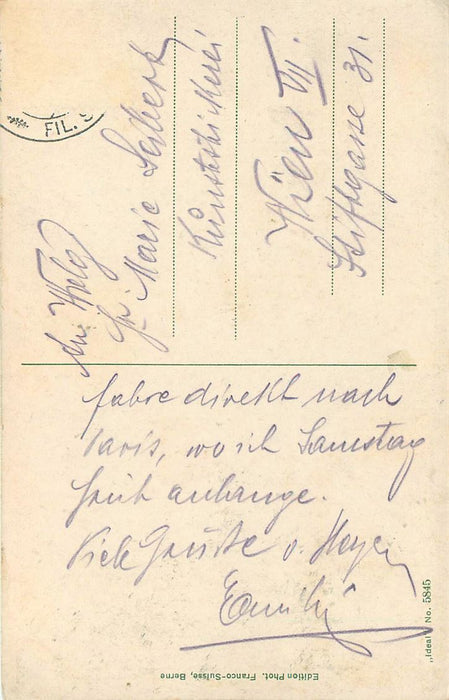 FIL.
An Wolg
Fr. Marie Seiberk
Kunststickerei
Wien VII.
Stiftgasse 31.
fahre direkt nach
Paris, wo ich Samstag
früh anlange.
Viele Grüsse v. 
Emily
Edition Phot. Franco-Suisse, Berne
„Ideal“ No. 5845